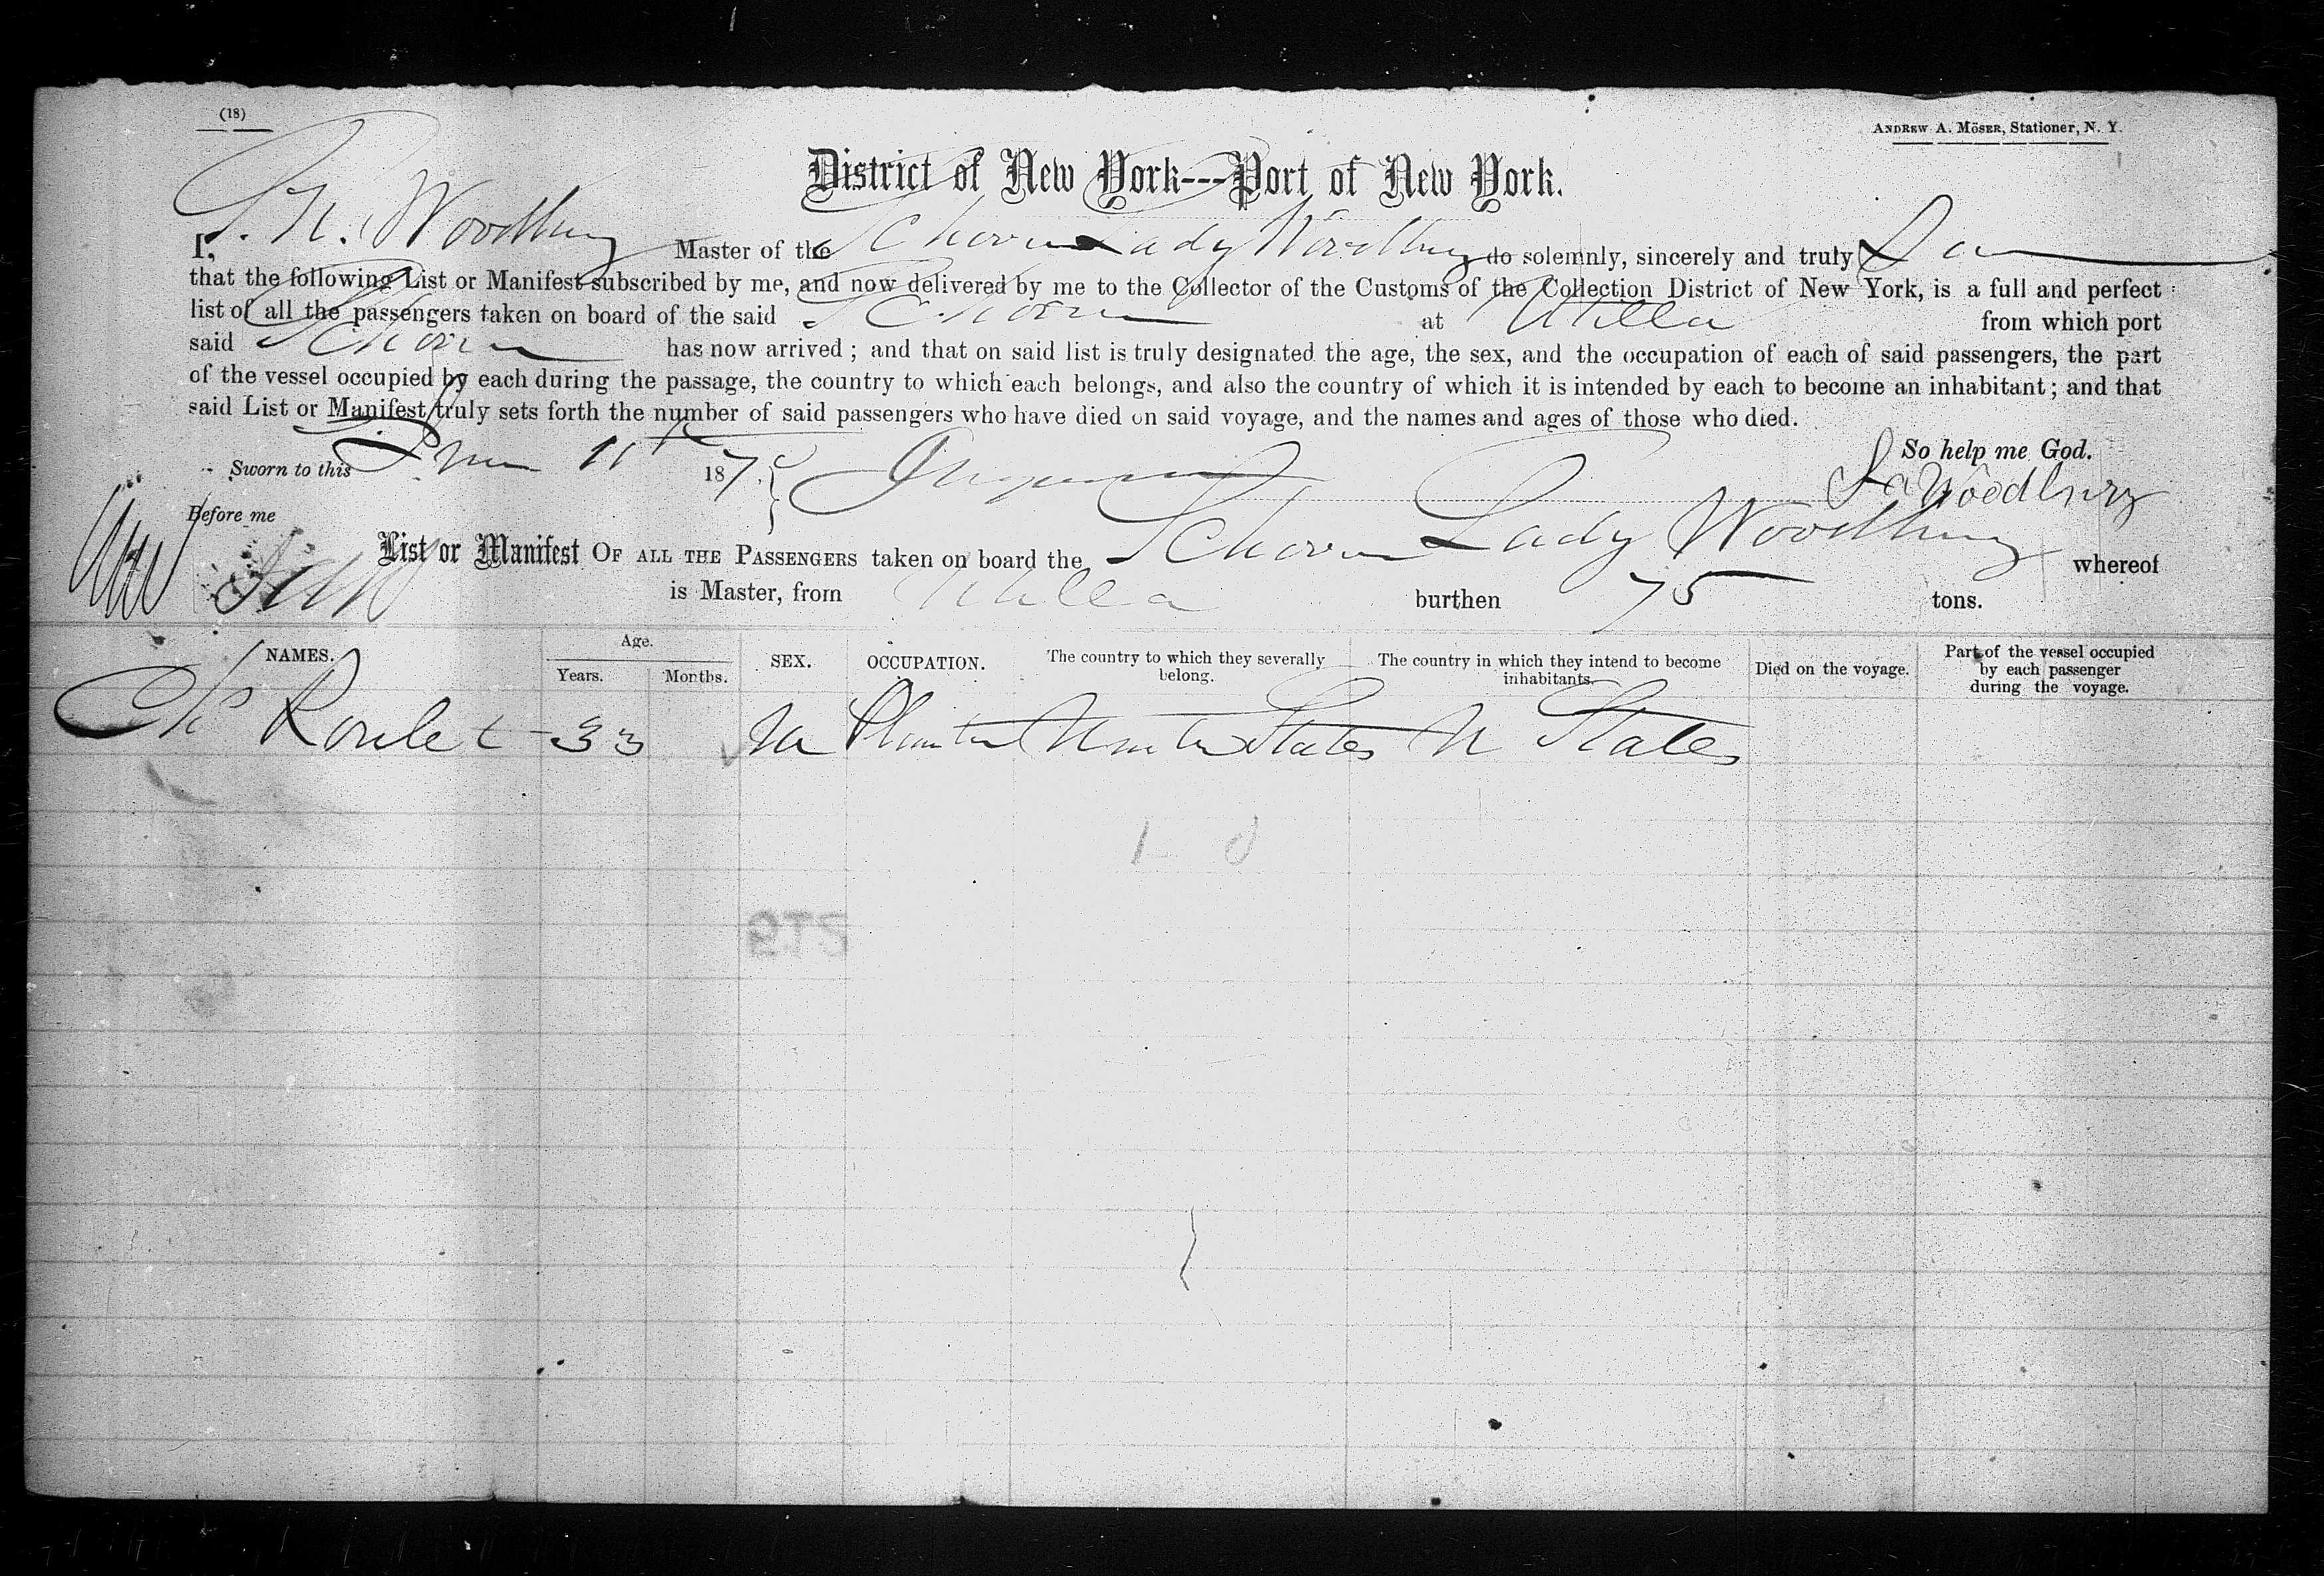 (18)
ANDREW A. MÖSER, Stationer, N. Y.
District of New York---Port of New York.
I, Woodbury Master of the Schooner Lady Woodbury do solemnly, sincerely and truly
that the following List or Manifest subscribed by me, and now delivered by me to the Collector of the Customs of the Collection District of New York, is a full and perfect
list of all the passengers taken on board of the said Schooner at Utilla from which port
said Schooner has now arrived; and that on said list is truly designated the age, the sex, and the occupation of each of said passengers, the part
of the vessel occupied by each during the passage, the country to which each belongs, and also the country of which it is intended by each to become an inhabitant; and that
said List or Manifest truly sets forth the number of said passengers who have died on said voyage, and the names and ages of those who died.
So help me God.
Sworn to this 11 187
Woodbury
Before me
List or Manifest OF ALL THE PASSENGERS taken on board the Schooner Lady Woodbury whereof
is Master, from Utilla burthen 75 tons.
NAMES. Age. Years. Months. SEX. OCCUPATION. The country to which they severally belong. The country in which they intend to become inhabitants. Died on the voyage. Part of the vessel occupied by each passenger during the voyage.
Roulet 33 M Planter United States U States
1 0